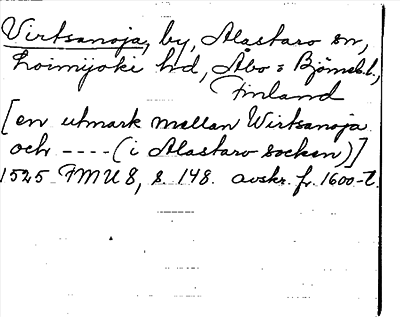 Virtsanoja, by, Alastaro sn,
Loimijoki hd, Åbo o Björneb.l.,
Finland
[en utmark mellan Wirtsanoja
och ---- (i Alastaro socken)]
1525 FMU 8, s. 148. avskr. fr. 1600-t.